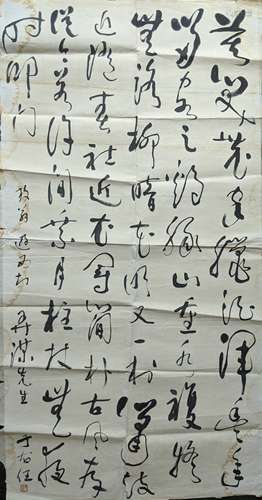 莫笑農家臘酒渾豐年
留客足雞豚山重水複疑
無路柳暗花明又一村簫鼓
追隨春社近衣冠簡朴古風存
從今若許閒乘月拄杖無夜
时叩門
放翁遊西村
謀先生
于右任